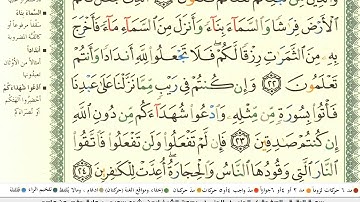 الْأَرْضَ فِرَٰشًا وَالسَّمَآءَ بِنَآءً وَأَنزَلَ مِنَ السَّمَآءِ مَآءً فَأَخْرَجَ
بِهِۦ مِنَ الثَّمَرَٰتِ رِزْقًا لَّكُمْ ۖ فَلَا تَجْعَلُوا۟ لِلَّهِ أَندَادًا وَأَنتُمْ
تَعْلَمُونَ ﴿٢٢﴾ وَإِن كُنتُمْ فِى رَيْبٍ مِّمَّا نَزَّلْنَا عَلَىٰ عَبْدِنَا
فَأْتُوا۟ بِسُورَةٍ مِّن مِّثْلِهِۦ وَادْعُوا۟ شُهَدَآءَكُم مِّن دُونِ اللَّهِ
إِن كُنتُمْ صَٰدِقِينَ ﴿٢٣﴾ فَإِن لَّمْ تَفْعَلُوا۟ وَلَن تَفْعَلُوا۟ فَاتَّقُوا۟
النَّارَ الَّتِى وَقُودُهَا النَّاسُ وَالْحِجَارَةُ ۖ أُعِدَّتْ لِلْكَٰفِرِينَ ﴿٢٤﴾
السَّمَاءَ بِنَاءً
أَندَادًا
ادْعُوا شُهَدَاءَكُم